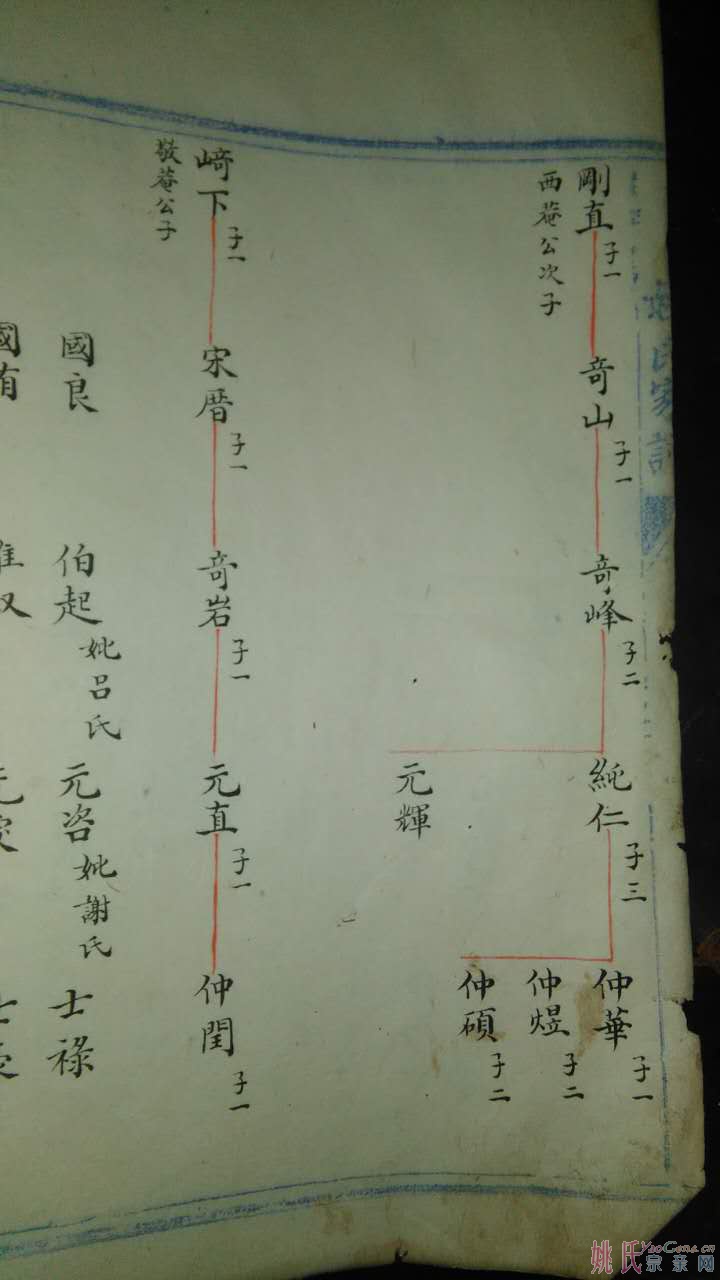 姚氏家譜
剛直 子一
西菴公次子
竒山 子一
竒峰 子二
純仁 子三
元輝
仲華 子一
仲煜 子二
仲碩 子二
﨑下 子一
敬菴公子
宋曆 子一
竒岩 子一
元直 子一
仲閏 子一
國良
伯起
妣呂氏
元咨
妣謝氏
士祿
國有
姚氏宗亲网
YaoGens.cn